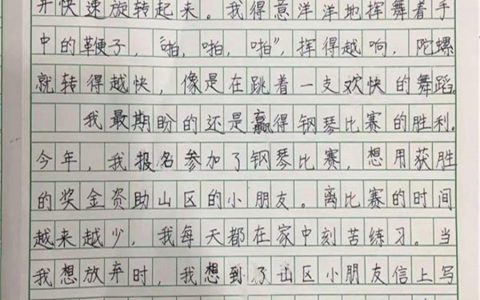 开快速旋转起来。我得意洋洋地挥舞着手
中的鞭子，“啪，啪，啪”，挥得越响，陀螺
就转得越快，像是在跳着一支欢快的舞蹈。
我最期盼的还是赢得钢琴比赛的胜利。
今年，我报名参加了钢琴比赛，想用获胜
的奖金资助山区的小朋友。离比赛的时间
越来越少，我每天都在家中刻苦练习。当
我想放弃时，我想到了山区小朋友信上写